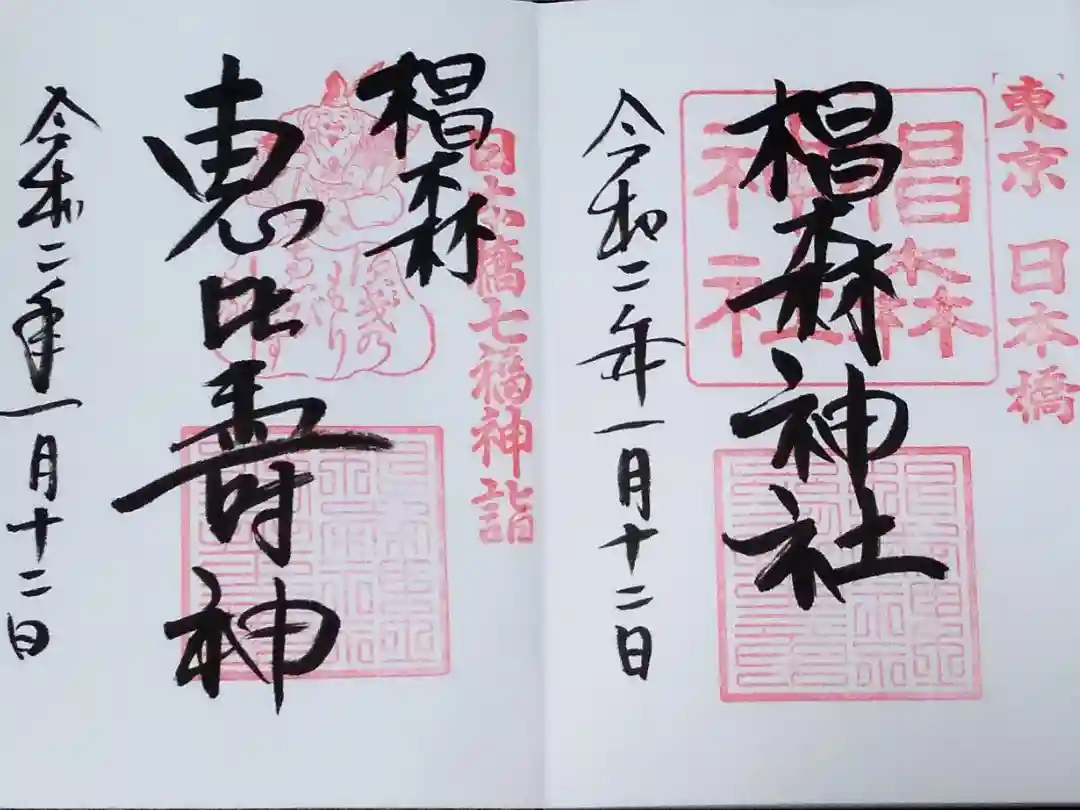 東京 日本橋
椙森神社
椙森神社
令和二年一月十二日
日本橋七福神詣
椙森
恵比寿神
令和二年一月十二日